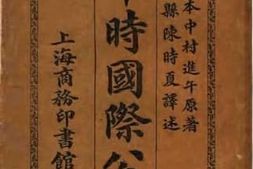 本中村進午原著
縣陳時夏譯述
時國際公
上海商務印書館